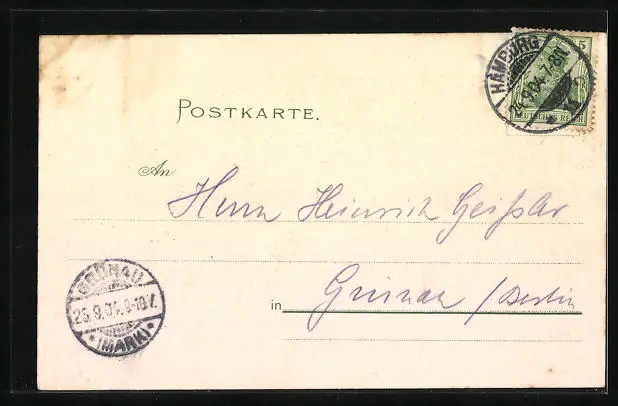 POSTKARTE.
5
DEUTSCHES REICH
HAMBURG
24.9.04.7-8N.
* 1
An
Herrn Heinrich Geißler
in Grünau / Berlin
GRÜNAU
25.9.04.9-10V.
* (MARK) *